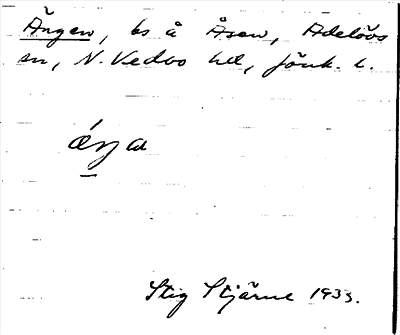 Ängen, bs å Åsen, Adelövs
sn, N. Vedbo hd, Jönk. l.
áŋa
Stig Stjärne 1933.